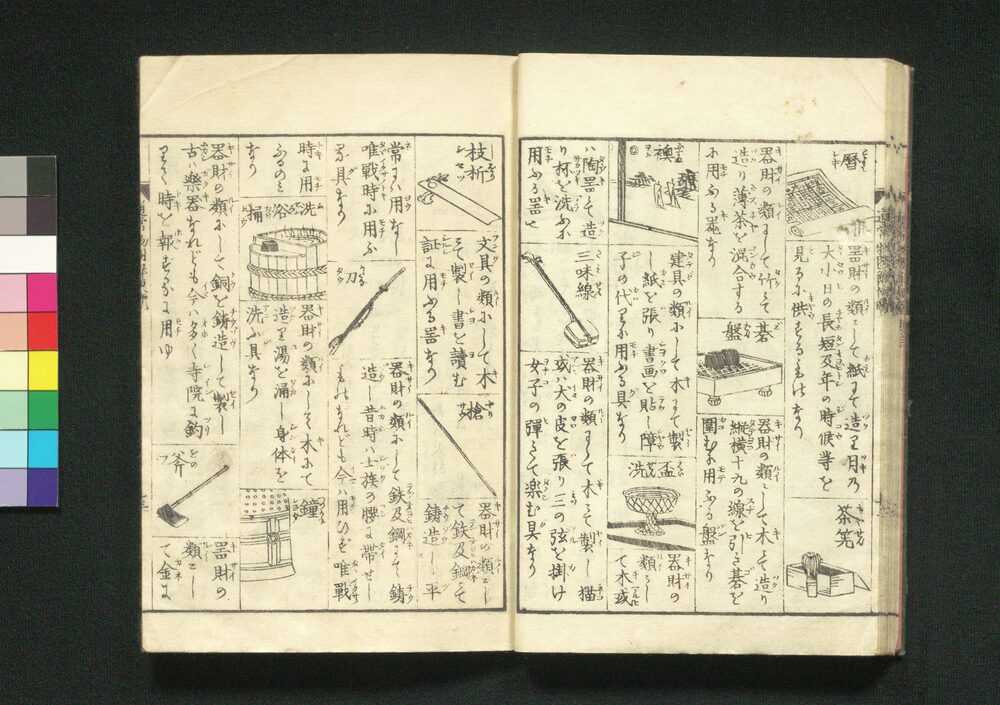 暦
器財の類にして紙にて造り月乃
大小日の長短及年の時候等を
見るに供するものなり
茶筅
器財の類にして竹にて
造り薄茶を混合する
に用ふる器なり
碁盤
器財の類にして木にて造り
縦横十九の線を引き碁を
圍むに用ふる盤なり
襖
建具の類にして木にて製
し紙を張り書画を貼し障
子の代りに用ふる具なり
盃洗
器財の
類にし
て木或
ハ陶器にて造
り杯を洗ふに
用ふる器也
三味線
器財の類にして木にて製し猫
或ハ犬の皮を張り三の弦を掛け
女子の彈して楽む具なり
枝折
文具の類にして木
にて製し書を讀む
証に用ふる器なり
槍
器財の類にし
て鉄及鋼にて
鋳造し平
常にハ用なし
唯戰時に用ふ
る具なり
刀
器財の類にして鉄及鋼にて鋳
造し昔時ハ士族の腰に帶せし
ものなれども今ハ用ひず唯戰
時に用
ふるのミ
なり
洗浴桶
器財の類にして木にて
造り湯を涌し身体を
洗ふ具なり
鐘
器財の類にして銅を鋳造して製し
古ハ樂器なれども今ハ多く寺院に釣
時を報ずるに用ゆ
斧
器財の
類にし
て金に